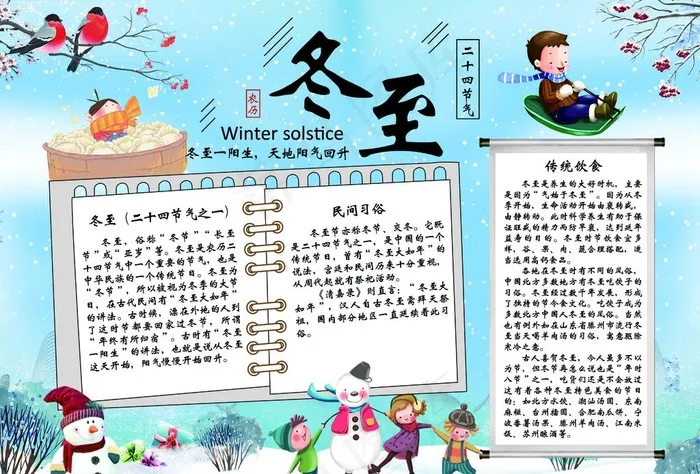 冬至
二十四节气
农历
Winter solstice
冬至一阳生，天地阳气回升
冬至（二十四节气之一）
冬至，俗称“冬节”“长至
节”或“亚岁”等。冬至是农历二
十四节气中一个重要的节气，也是
中华民族的一个传统节日。冬至为
“冬节”，所以被视为冬季的大节
日，在古代民间有“冬至大如年”
的讲法。古时候，漂在外地的人到
了这时节都要回家过冬节，所谓
“年终有所归宿”。古时有“冬至
一阳生”的讲法，也就是说从冬至
这天开始，阳气慢慢开始回升。
民间习俗
冬至节亦称冬节、交冬。它既
是二十四节气之一，是中国的一个
传统节日，曾有“冬至大如年”的
说法，宫廷和民间历来十分重视，
从周代起就有祭祀活动。
《清嘉录》则直言：“冬至大
如年”，汉人自古冬至需拜天祭
祖，国内部分地区一直延续着此习
俗。
传统饮食
冬至是养生的大好时机，主要
是因为“气始于冬至”。因为从冬
季开始，生命活动开始由衰转盛，
由静转动。此时科学养生有助于保
证旺盛的精力而防早衰，达到延年
益寿的目的。冬至时节饮食宜多
样，谷、果、肉、蔬合理搭配，适
当选用高钙食品。
各地在冬至时有不同的风俗，
中国北方多数地方有冬至吃饺子的
习俗。冬至经过数千年发展，形成
了独特的节令食文化。吃饺子成为
多数中国人冬至的风俗。当然
也有例外如在山东省滕州市流行冬
至当天喝羊肉汤的习俗，寓意驱除
寒冷之意。
古人喜贺冬至，今人虽多不以
为节，但冬节再怎么说也是“年时
八节”之一，吃货们还是不会放过
这有着各种冬至特色美食的节日
的：如北方水饺、潮汕汤圆、东南
麻糍、台州擂圆、合肥南瓜饼、宁
波番薯汤果、滕州羊肉汤、江南米
饭、苏州酿酒等。